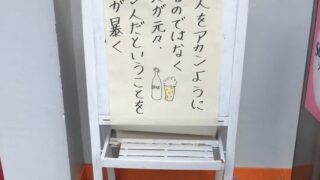 人をアカンように
るのではなく
が元々、
ンだということを
が暴く